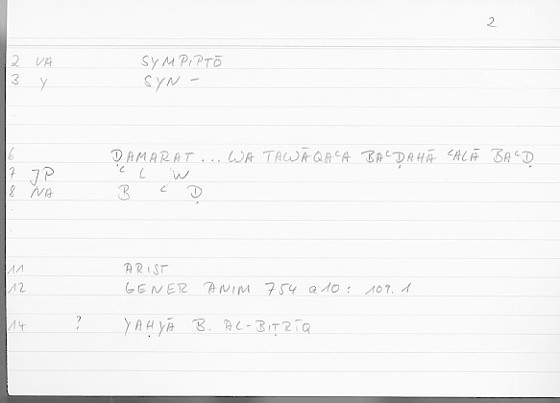 2
2 VA SYMPIPTŌ
3 Y SYN –
6 ḌAMARAT ... WA TAWĀQAᶜA BAᶜḌAHĀ ᶜALĀ BAᶜḌ
7 JP ᶜ L W
8 NA B ᶜ Ḍ
11 ARIST
12 GENER ANIM 754 a10 : 109.1
14 ? YAḤYĀ B. AL-BIṬRĪQ